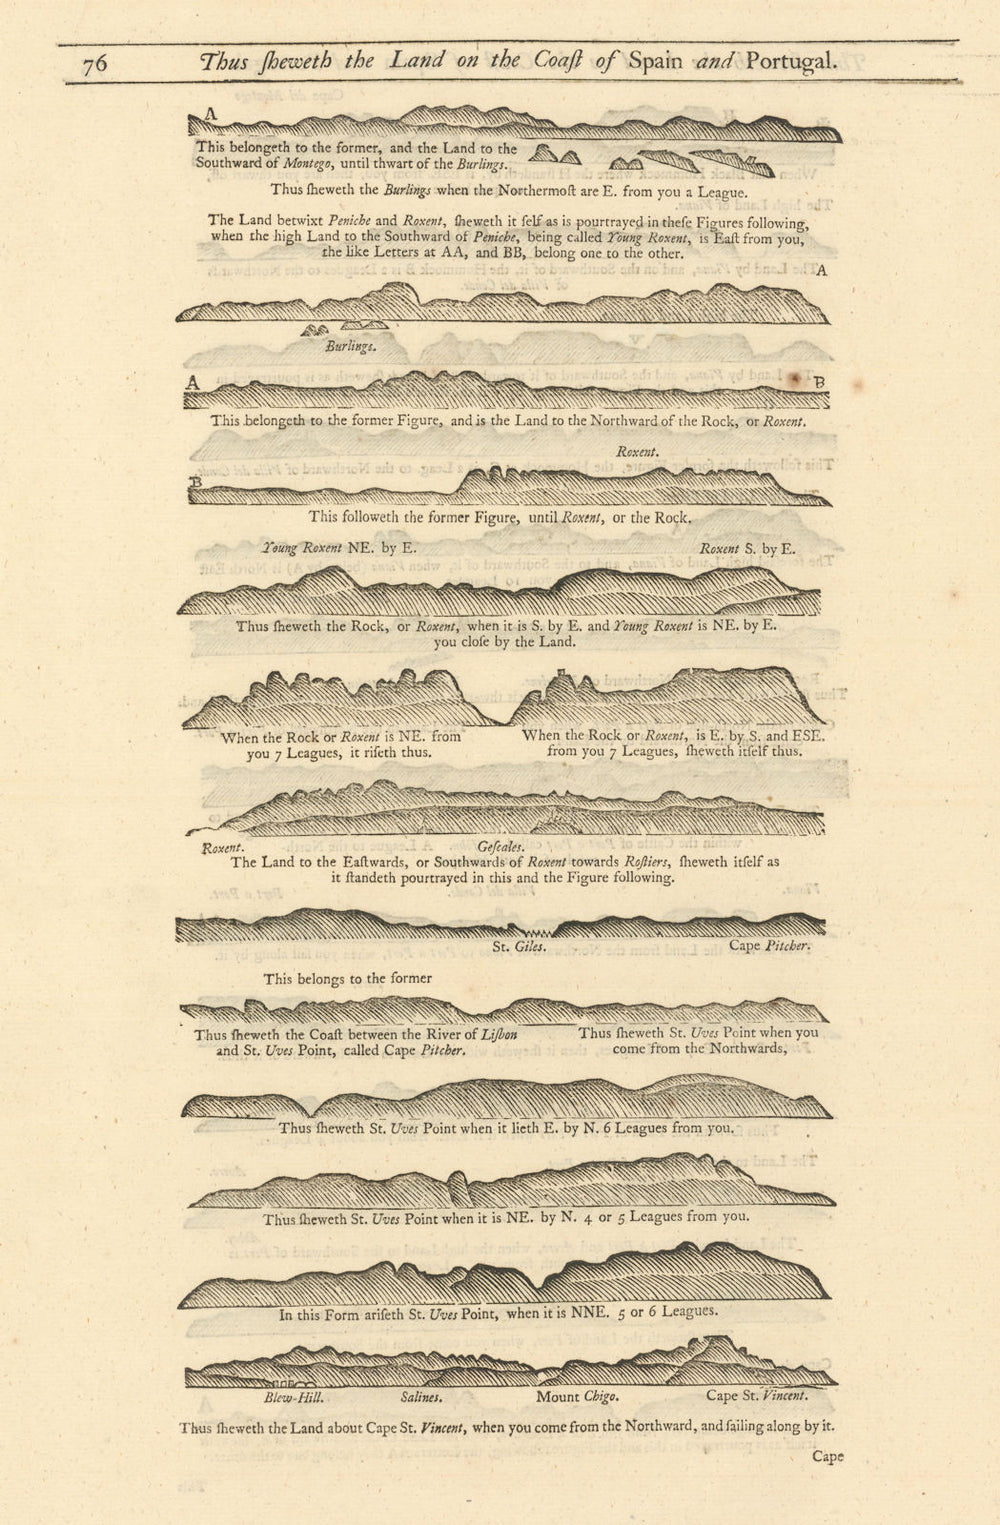 76 Thus ſheweth the Land on the Coaſt of Spain and Portugal.
A
This belongeth to the former, and the Land to the
Southward of Montego, until thwart of the Burlings.
Thus ſheweth the Burlings when the Northermoſt are E. from you a League.
The Land betwixt Peniche and Roxent, ſheweth it ſelf as is pourtrayed in theſe Figures following,
when the high Land to the Southward of Peniche, being called Young Roxent, is Eaſt from you,
the like Letters at AA, and BB, belong one to the other.
A
Burlings.
A B
This belongeth to the former Figure, and is the Land to the Northward of the Rock, or Roxent.
Roxent.
B
This followeth the former Figure, until Roxent, or the Rock.
Young Roxent NE. by E. Roxent S. by E.
Thus ſheweth the Rock, or Roxent, when it is S. by E. and Young Roxent is NE. by E.
you cloſe by the Land.
When the Rock or Roxent is NE. from
you 7 Leagues, it riſeth thus.
When the Rock or Roxent, is E. by S. and ESE.
from you 7 Leagues, ſheweth itſelf thus.
Roxent. Geſcales.
The Land to the Eaſtwards, or Southwards of Roxent towards Roſtiers, ſheweth itſelf as
it ſtandeth pourtrayed in this and the Figure following.
St. Giles. Cape Pitcher.
This belongs to the former
Thus ſheweth the Coaſt between the River of Liſbon
and St. Uves Point, called Cape Pitcher.
Thus ſheweth St. Uves Point when you
come from the Northwards,
Thus ſheweth St. Uves Point when it lieth E. by N. 6 Leagues from you.
Thus ſheweth St. Uves Point when it is NE. by N. 4 or 5 Leagues from you.
In this Form ariſeth St. Uves Point, when it is NNE. 5 or 6 Leagues.
Blew-Hill. Salines. Mount Chigo. Cape St. Vincent.
Thus ſheweth the Land about Cape St. Vincent, when you come from the Northward, and ſailing along by it.
Cape